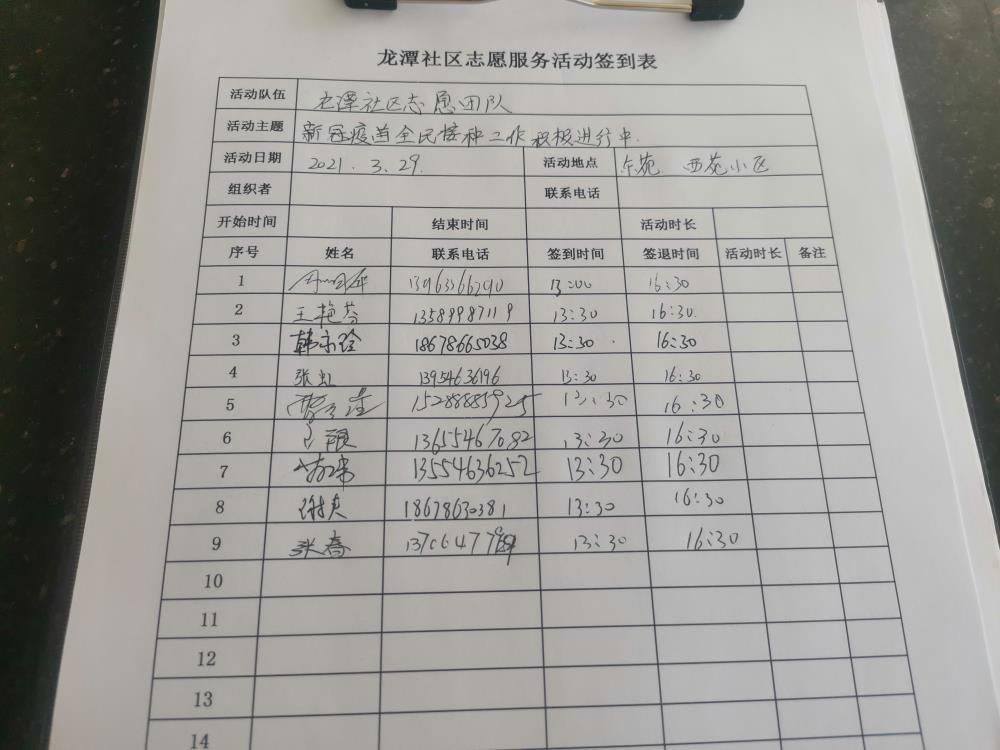 龙潭社区志愿服务活动签到表
活动队伍 龙潭社区志愿团队
活动主题 新冠疫苗全民接种工作积极进行中.
活动日期 2021.3.29. 活动地点 东苑 西苑小区
组织者 联系电话
开始时间 结束时间 活动时长
序号 姓名 联系电话 签到时间 签退时间 活动时长 备注
1 13963366290 13:00 16:30
2 王艳芬 13589987119 13:30 16:30.
3 韩 18678665038 13:30 16:30
4 张虹 13954636196 13:30 16:30
5 15288885925 13:30 16:30
6 13655467082 13:30 16:30
7 13554636252 13:30 16:30
8 谢爽 18678630381 13:30 16:30
9 张春 13:30 16:30
10
11
12
13
14